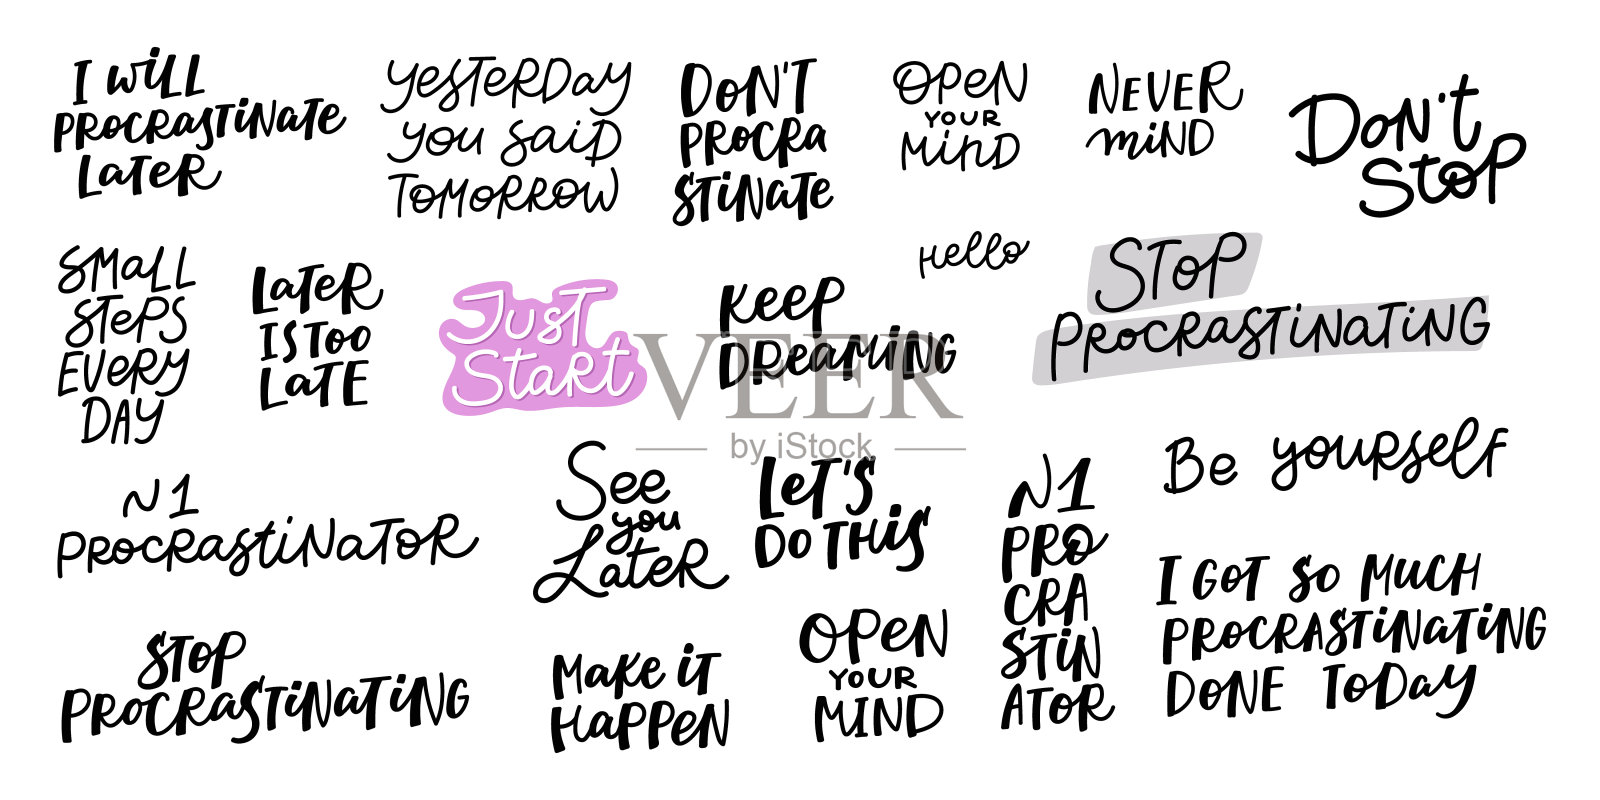 I WiLL
PROCRASTINATE
LATER
YESTERDAY
YOU SAiD
TOMORROW
DON'T
PROCRA
STiNATE
OPEN
YOUR
MiND
NEVER
MiND
DON'T
STOP
SMALL
STEPS
EVERY
DAY
LATER
IS TOO
LATE
JUST
START
KEEP
DREAMING
Hello
STOP
PROCRASTINATING
VEER
by iStock
N1
PROCRASTiNATOR
SEE
you
LATER
LET'S
DO THiS
N1
PRO
CRA
STiN
ATOR
Be yourself
I GOT SO MUCH
PROCRASTiNATiNG
DONE TODAY
STOP
PROCRASTiNATiNG
MAKE iT
HAPPEN
OPEN
YOUR
MIND